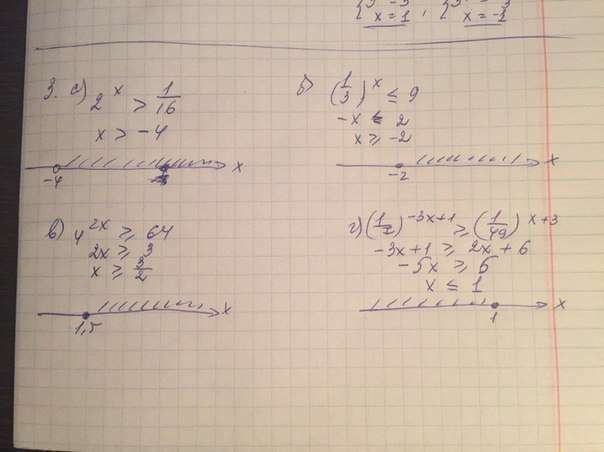 x = 1 , x = -1
3. а) 2^x > 1/16
x > -4
-4 x
б) (1/3)^x ≤ 9
-x ≤ 2
x ≥ -2
-2 x
в) 4^{2x} ≥ 64
2x ≥ 3
x ≥ 3/2
1,5 x
г) (1/7)^{-3x+1} ≥ (1/49)^{x+3}
-3x+1 ≥ 2x+6
-5x ≥ 6
x ≤ 1
1 x